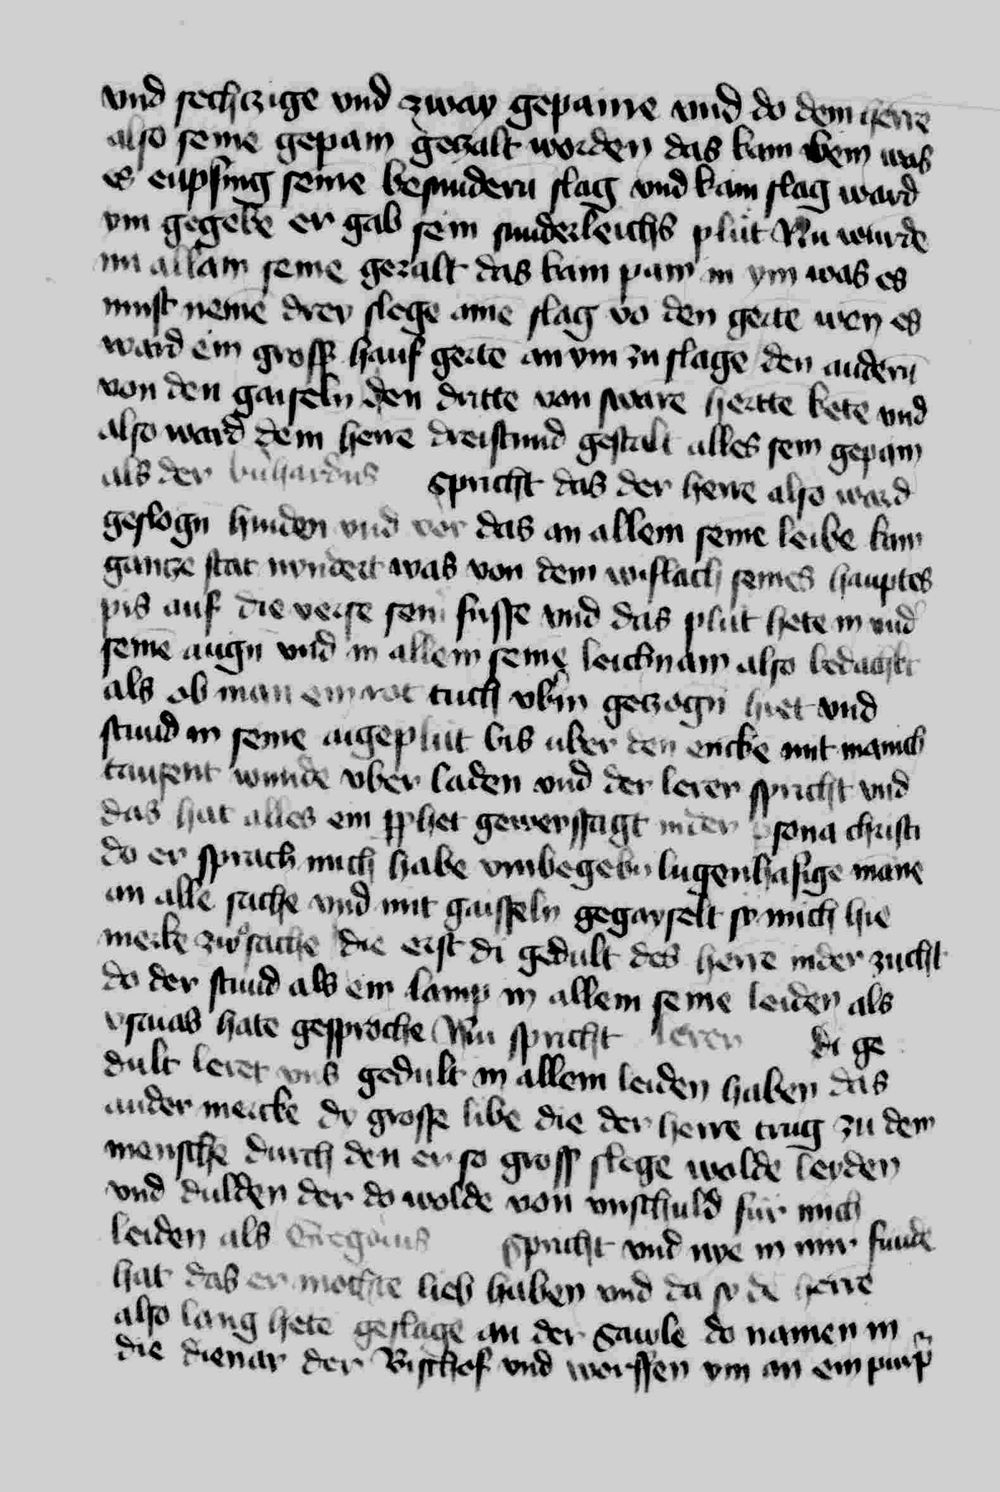 vnd sechczige vnd zway gepaine vnd do dem herre
also seine gepain geczalt worden das kain bein was
es enpfing seine besundern slag vnd kain slag ward
ym gegebē er gab sein sunderleichs plut Nu wurde
im allain seine gezalt das kain pain in ym was es
must nemē drey slege ainē slag vō den gertē wen es
ward ein gross hauf gertē an ym zu slagē den andern
von den gaiseln den dritte von swarē hertte ketē vnd
also ward dem herre dreistund gestalt alles sein gepain
als der spricht das der herre also ward
geslogn hinden vnd vor das an allem seine leibe kain
gantze stat nyndert was von dem wislach seines hauptes
pis auf die verse sein fusse vnd das plut hete in vnd
seinē augn vnd in allem seinē leichnam also bedackt
als ob man ein rot tuch vbˀin geczogn hiet vnd
stund in seine aigeplut bis uber den encke mit manich
tausent wunde vber laden vnd der lerer spricht vnd
das hat alles ein ꝓphet geweyssagt in der ꝑsona christi
do er sprach mich habe vmbegebn lugenhafige manē
an alle sache vnd mit gaisseln gegayselt so mich hie
merke zwo sache die erst di gedult des herre in der zucht
do der stund als ein lamp in allem seine leiden als
ysaias hate gesprochē Nu spricht lerer di ge
dult leret vns gedult in allem leiden haben das
ander mercke dy grosse libe die der herre trug zu dem
menschē durch den er so gross slege wolde leyden
vnd dulden der do wolde von vnschuld fur mich
leiden als Gregorius spricht vnd wye in mir funde
hat das er mochte lieb haben vnd da so dē herre
also lang hetē geslagē an der Sawle do namen in
die dienar der Bischof vnd worffen ym an ein purp̄